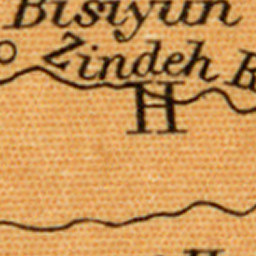 Bisiyun
Zindeh R
H